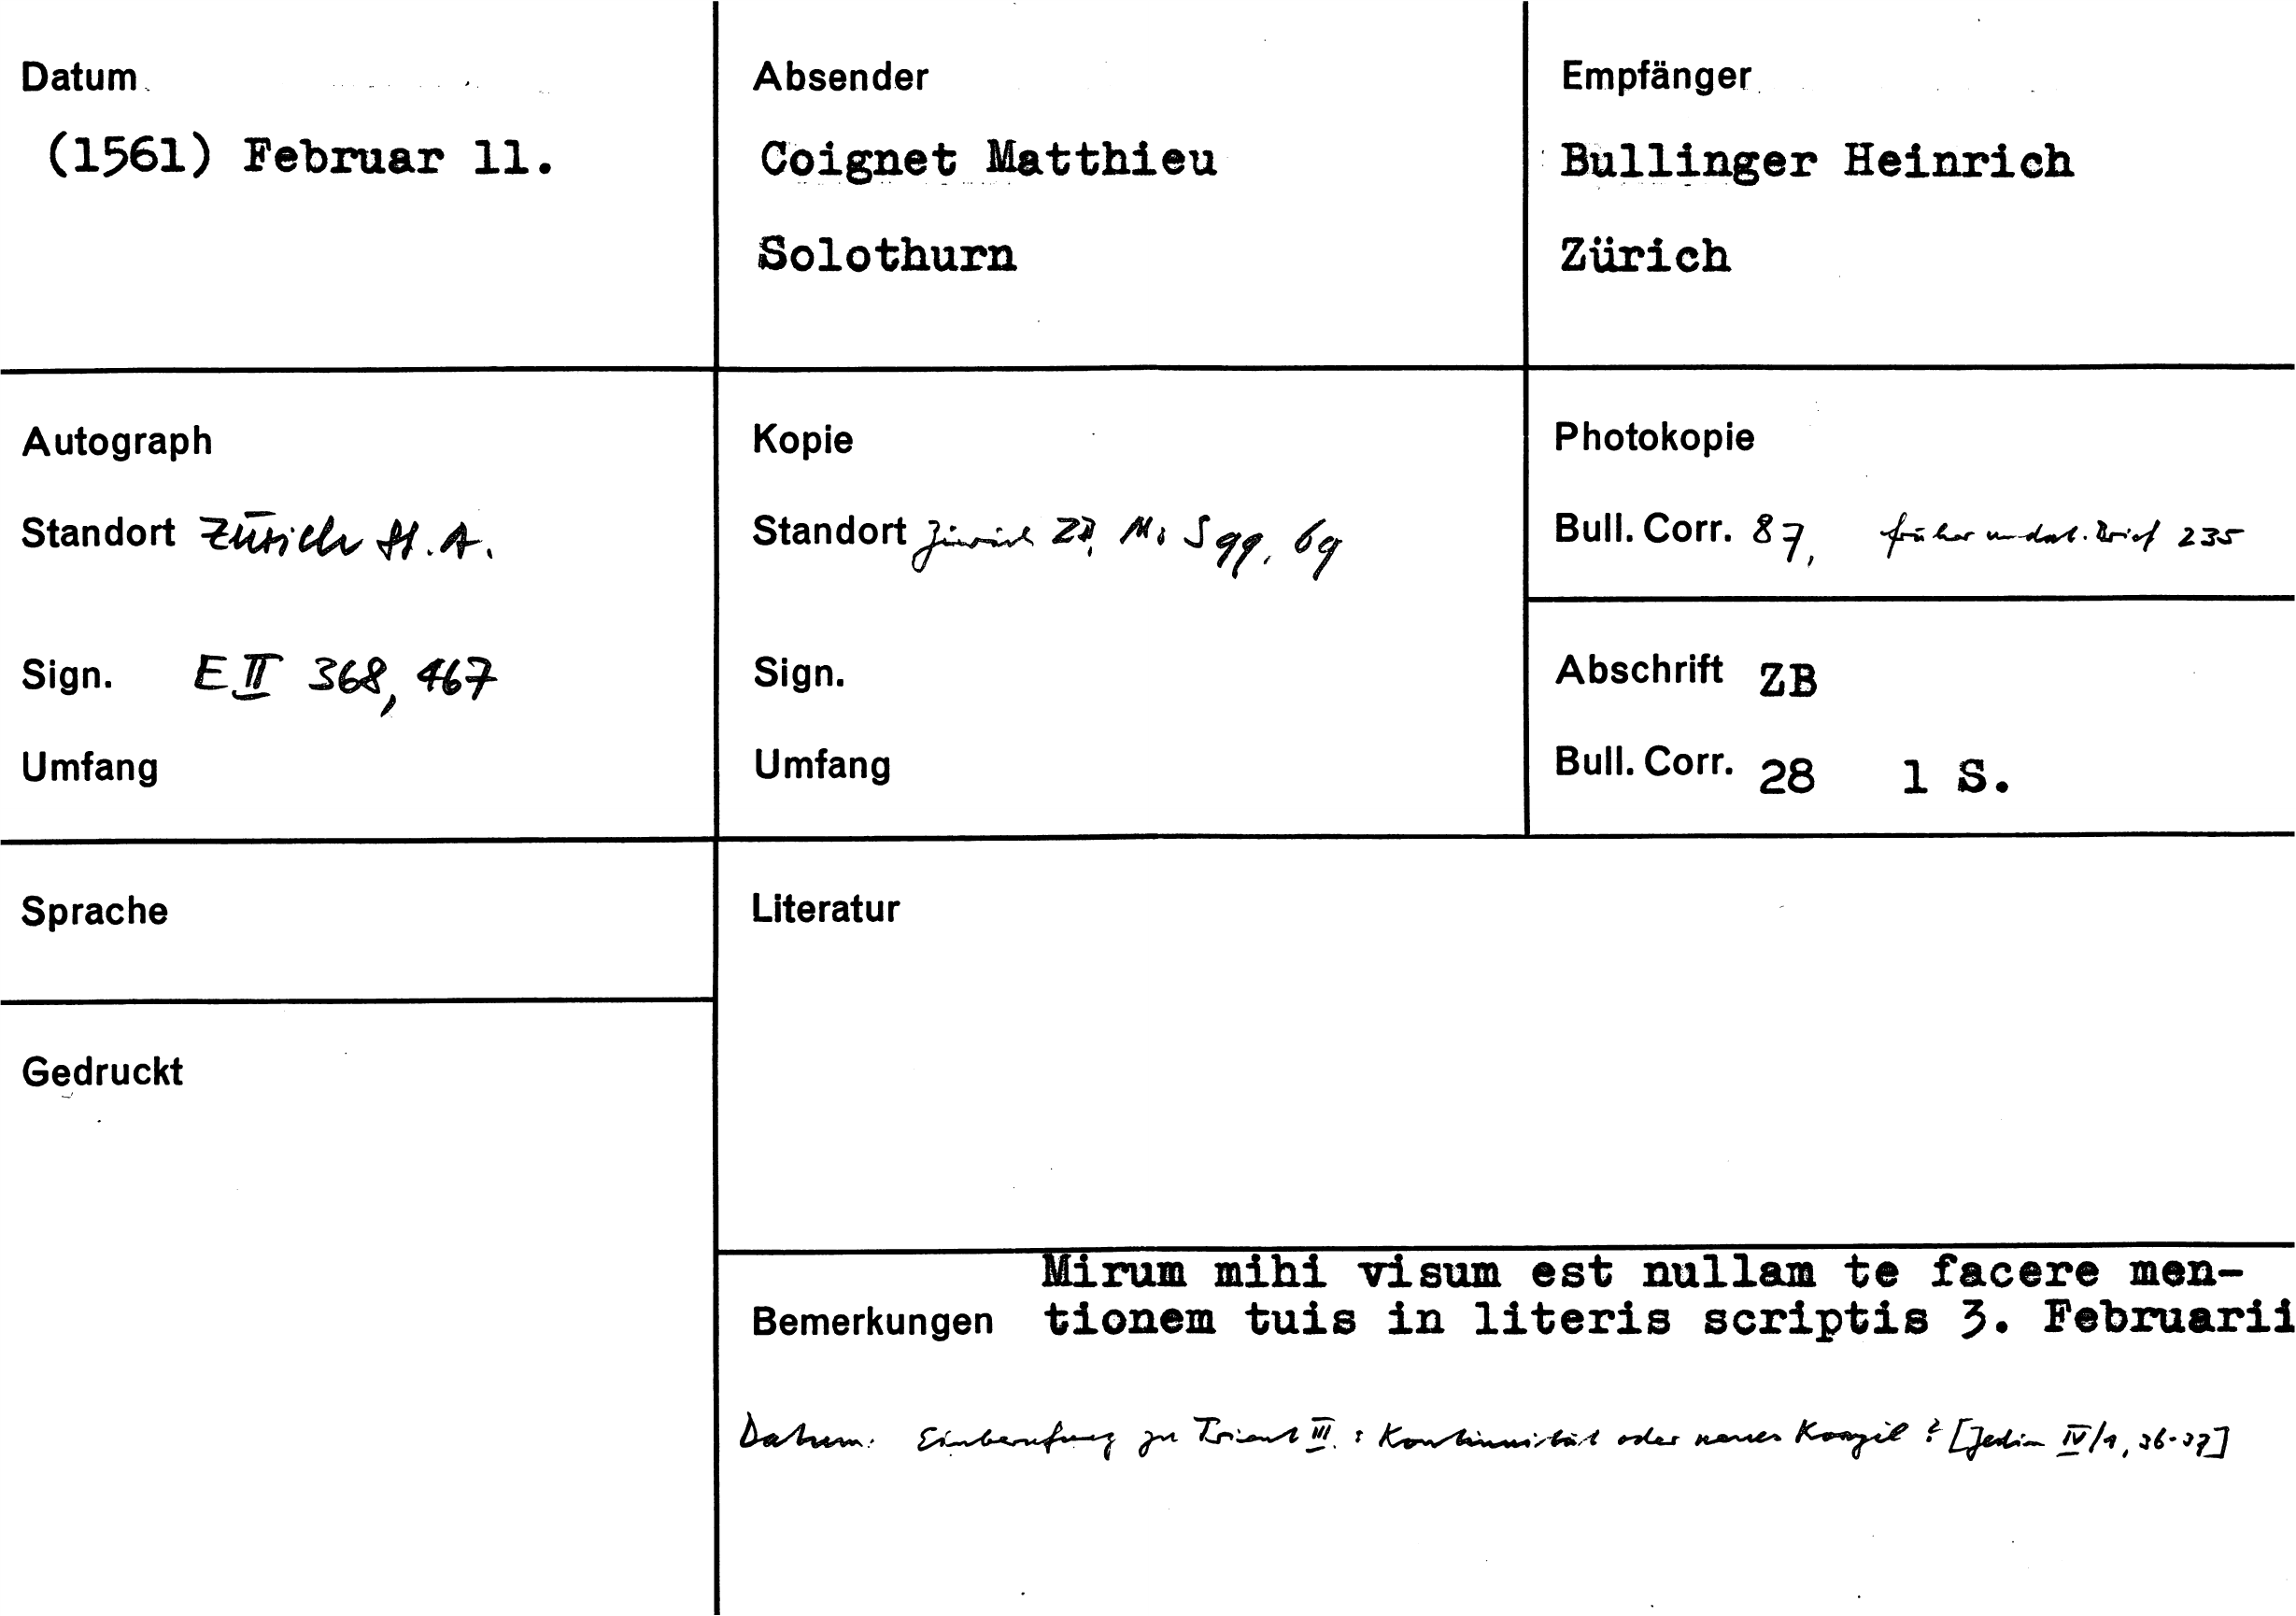 Datum
(1561) Februar 11.
Absender
Coignet Matthieu
Solothurn
Empfänger
Bullinger Heinrich
Zürich
Autograph
Standort Zürich St. A.
Sign. E II 368, 467
Umfang
Kopie
Standort Zürich ZB, Ms S 99, 69
Sign.
Umfang
Photokopie
Bull. Corr. 87, früher undat. Brief 235
Abschrift ZB
Bull. Corr. 28 1 S.
Sprache
Literatur
Gedruckt
Mirum mihi visum est nullam te facere men-
Bemerkungen tionem tuis in literis scriptis 3. Februarii
Datum: Einberufung zu Trient III: Kontinuität oder neues Konzil? [Jedin IV/1, 36-37]